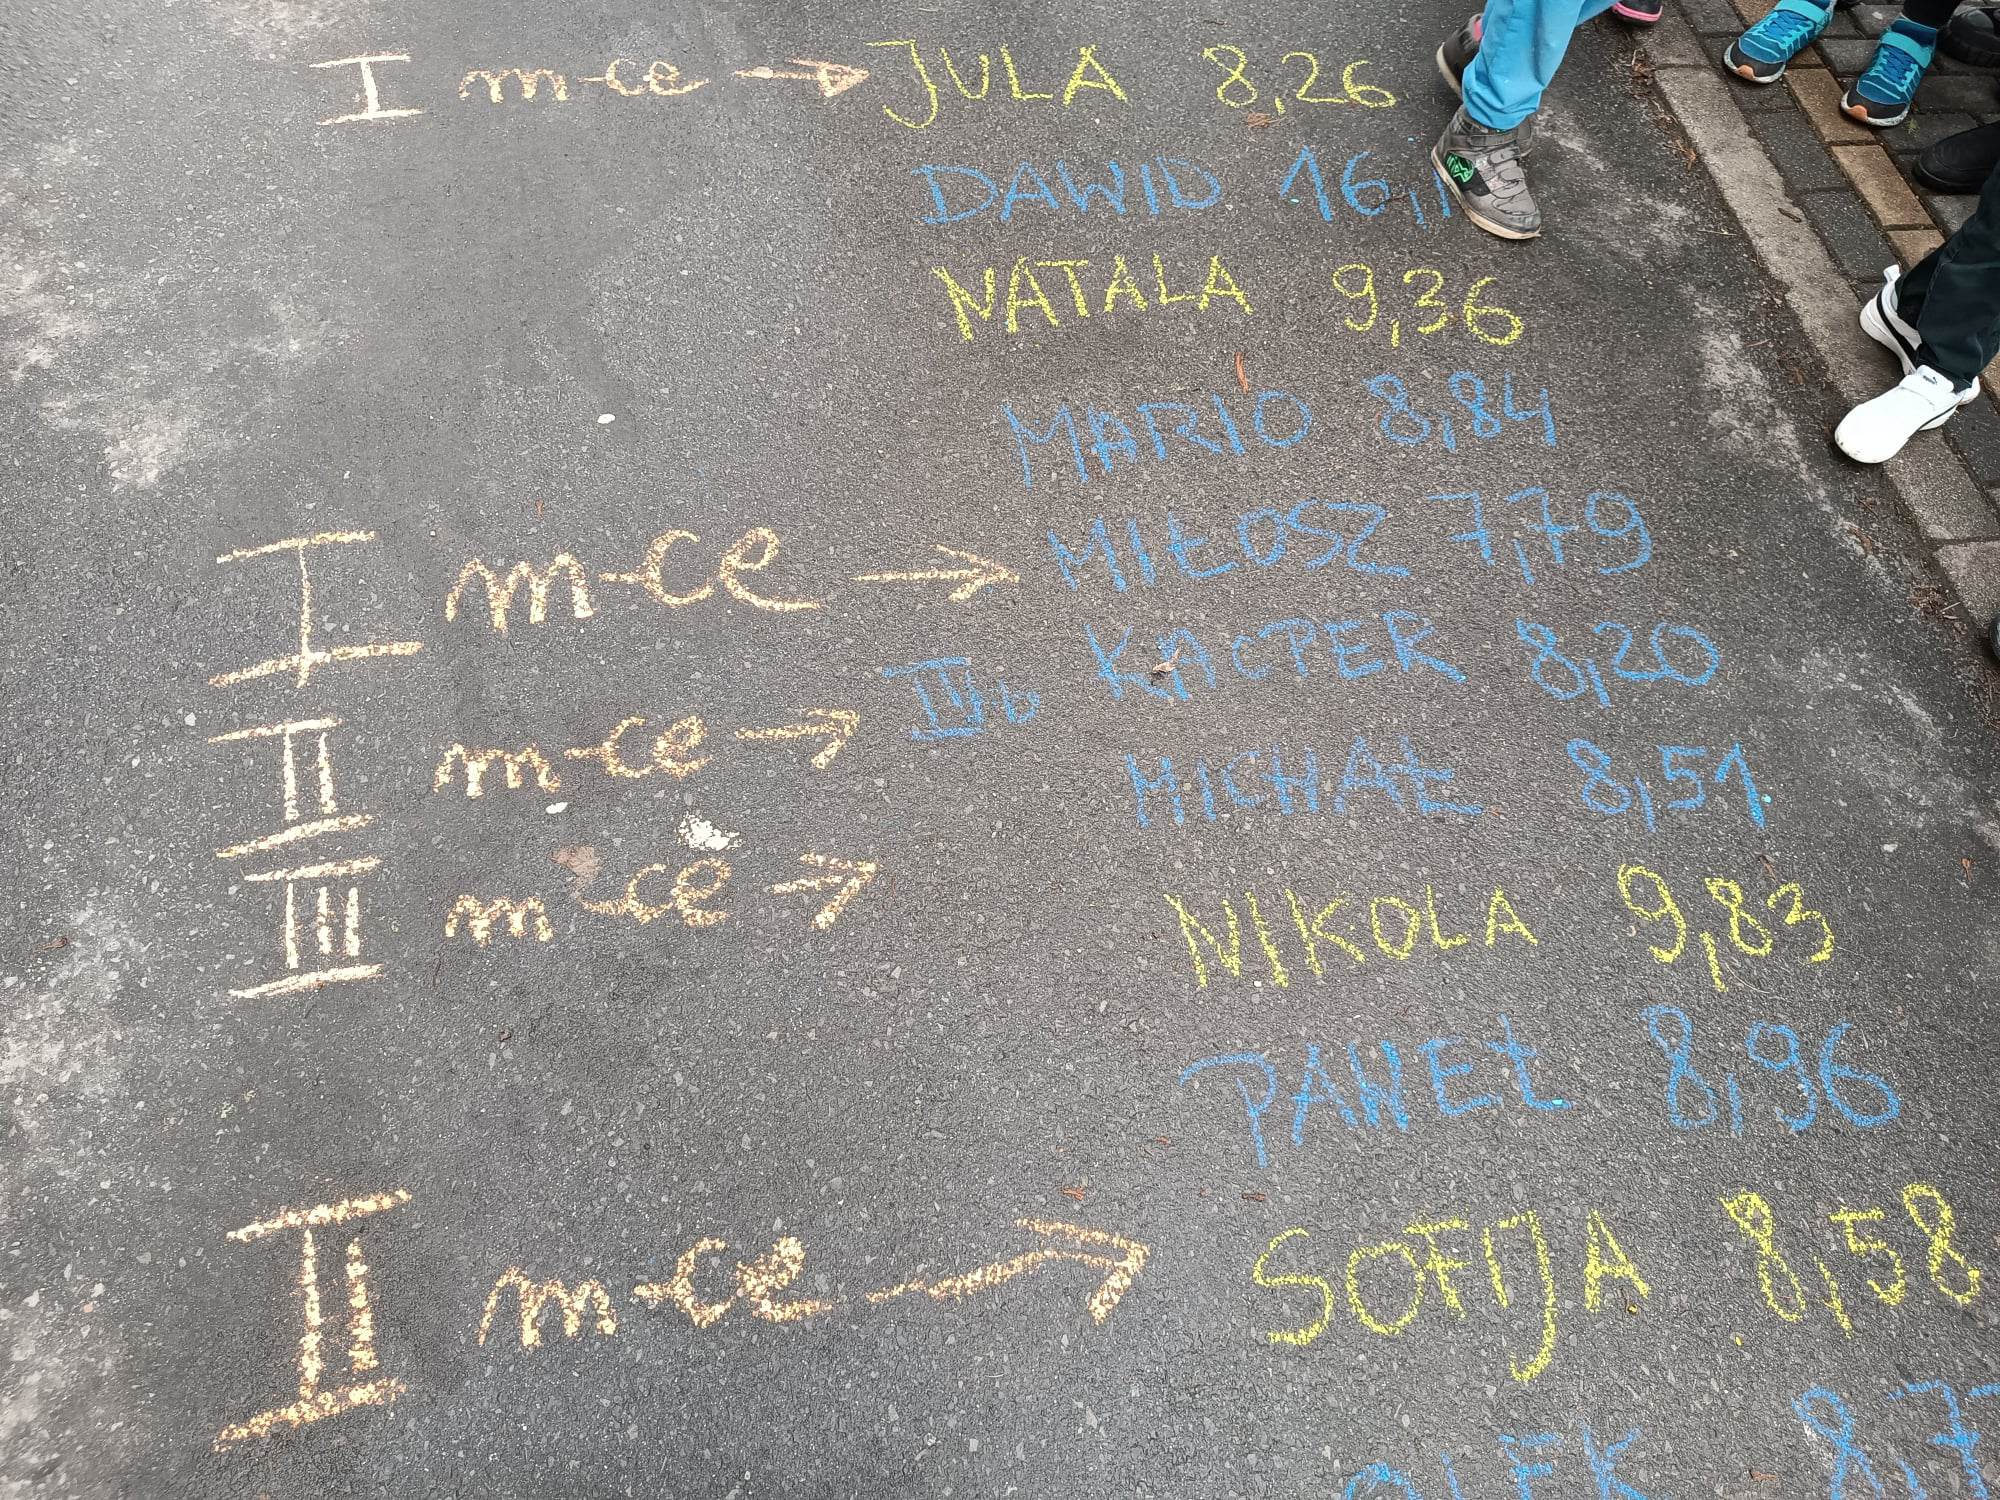 I m-ce → JULA 8,26
DAWID 16,1
NATALA 9,36
MARIO 8,84
I m-ce → MIŁOSZ 7,79
II m-ce → III b KACPER 8,20
III m-ce → MICHAŁ 8,51
NIKOLA 9,83
PAWEŁ 8,96
II m-ce → SOFIJA 8,58
OLEK 8,7